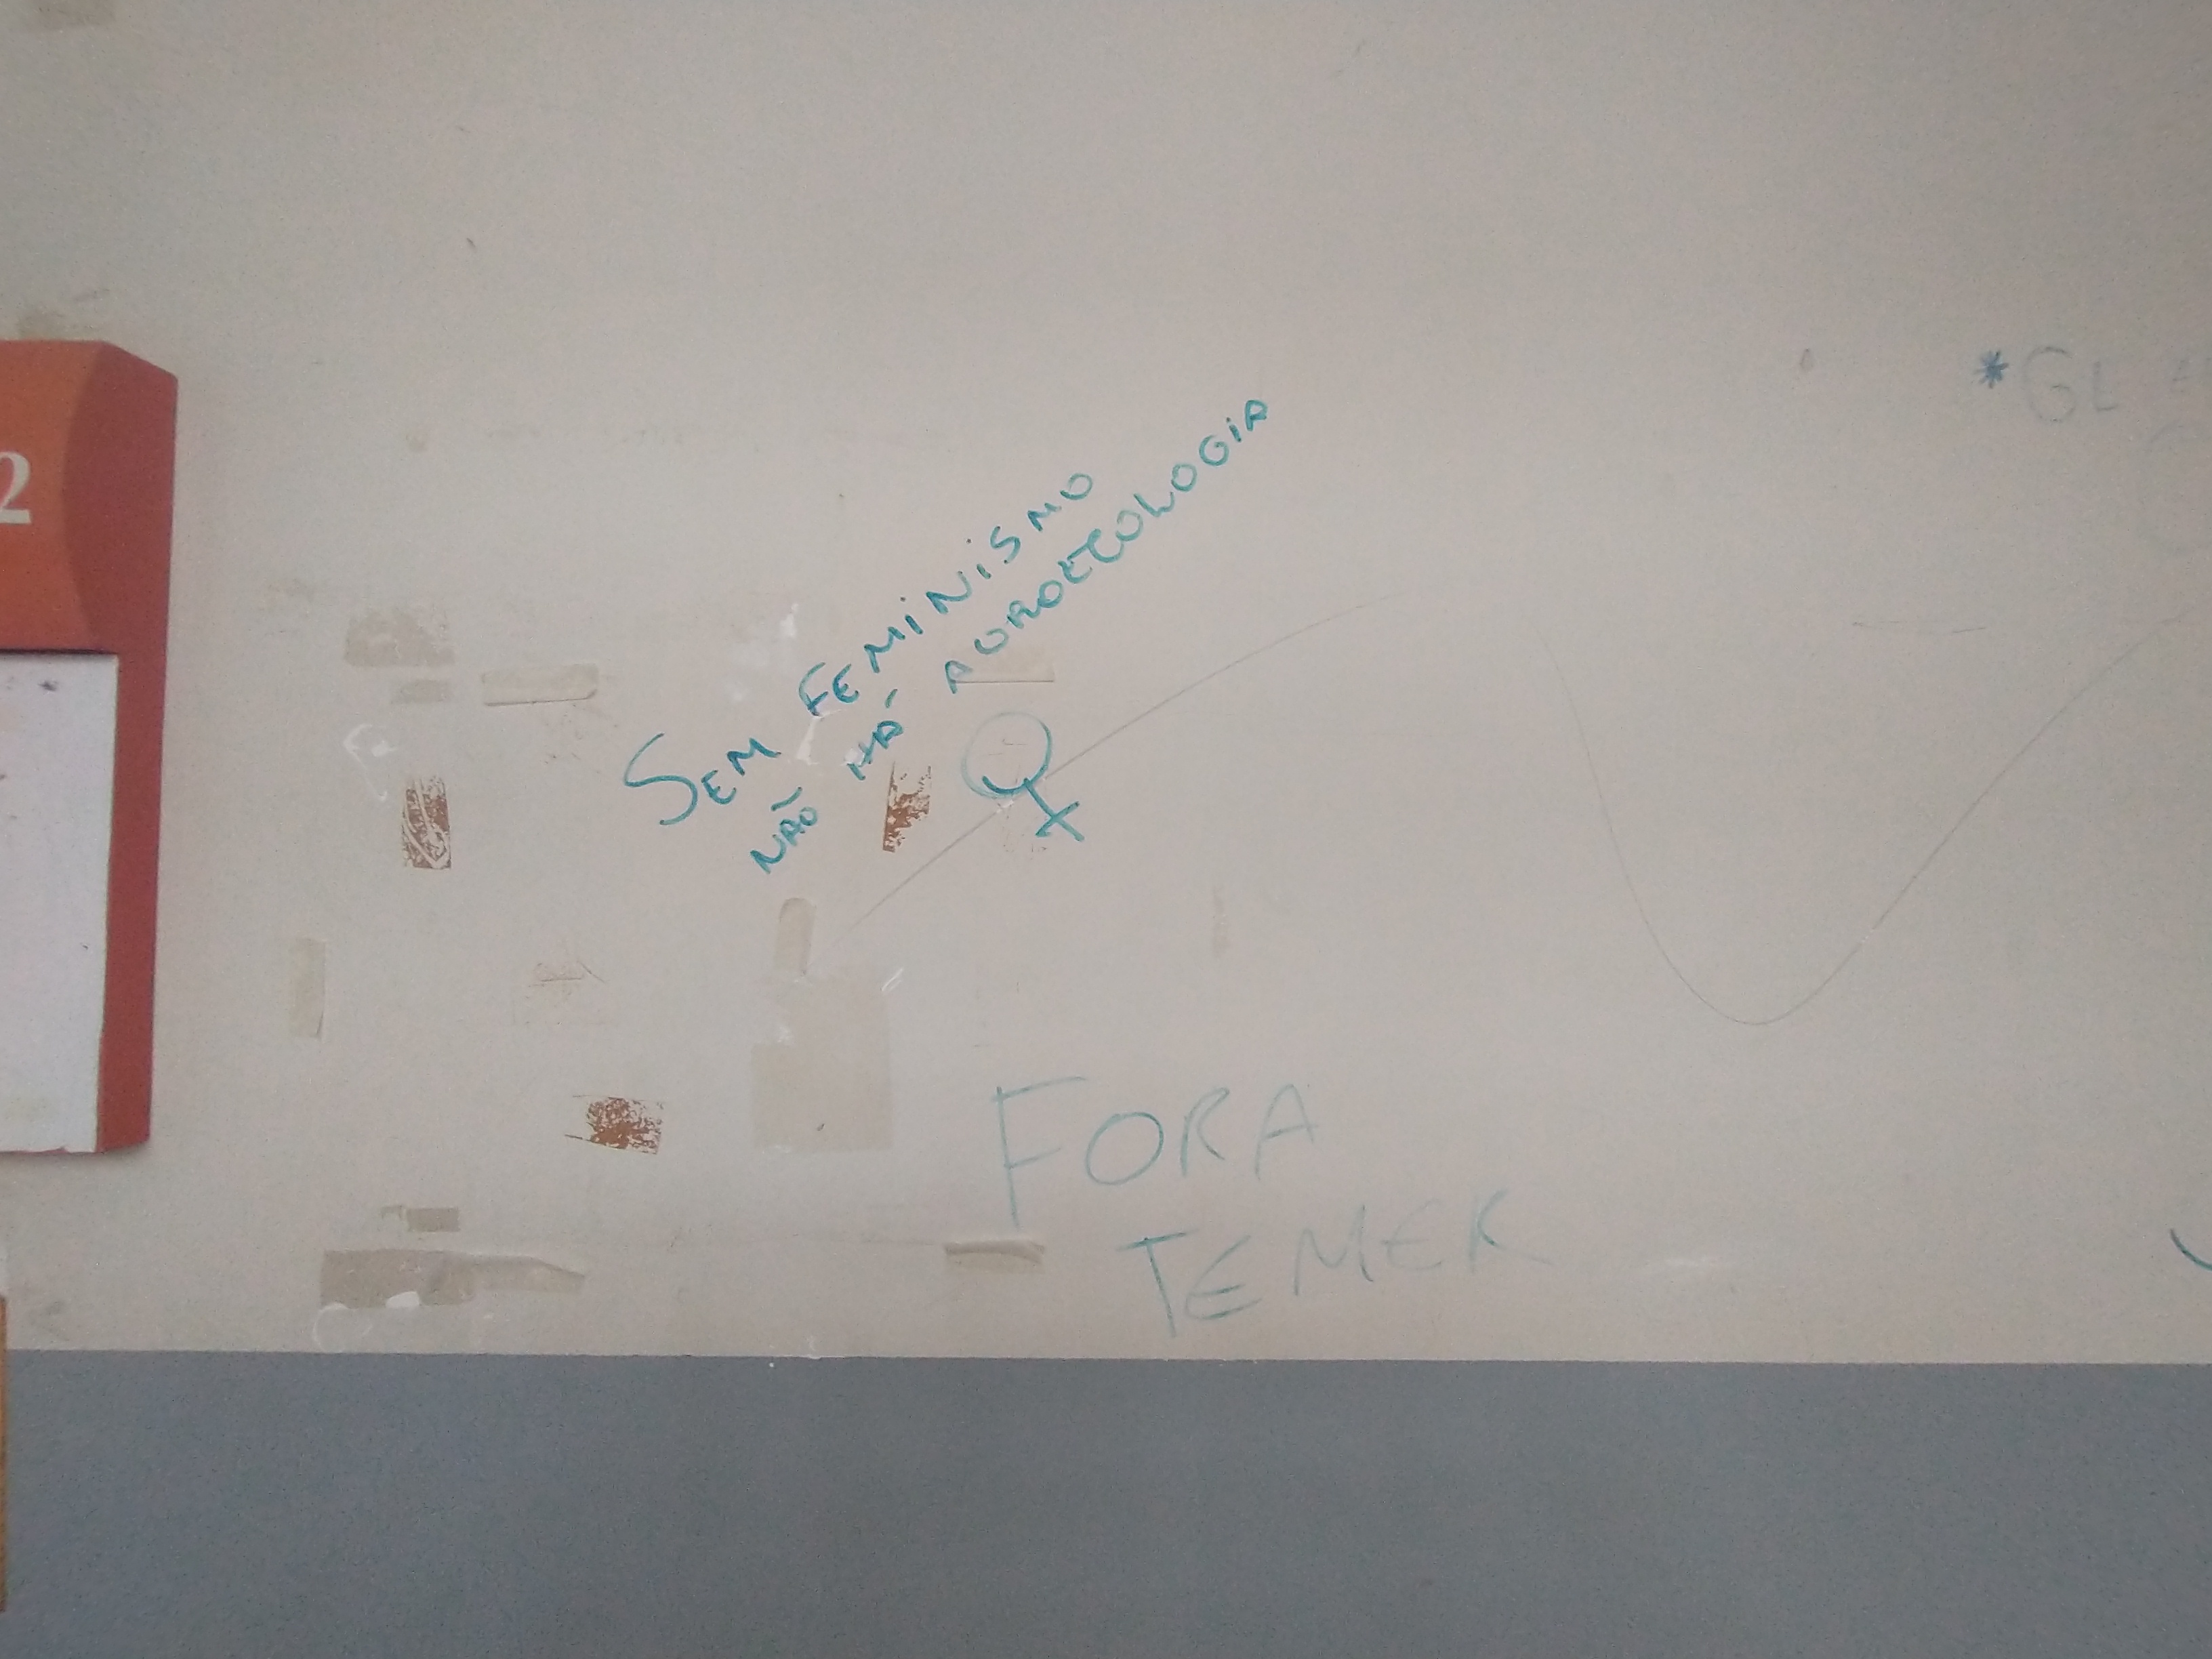 2
SEM FEMINISMO
NÃO HÁ AGROECOLOGIA
FORA
TEMER